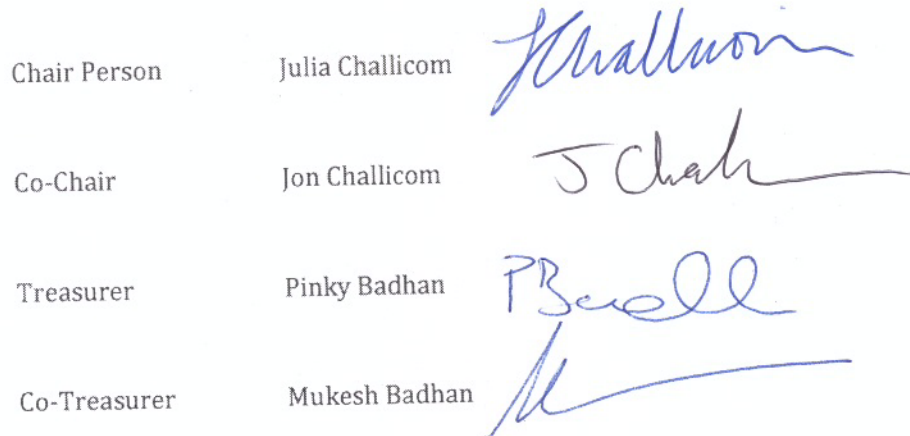 Chair Person Julia Challicom JChallicom
Co-Chair Jon Challicom J Chall
Treasurer Pinky Badhan
Co-Treasurer Mukesh Badhan